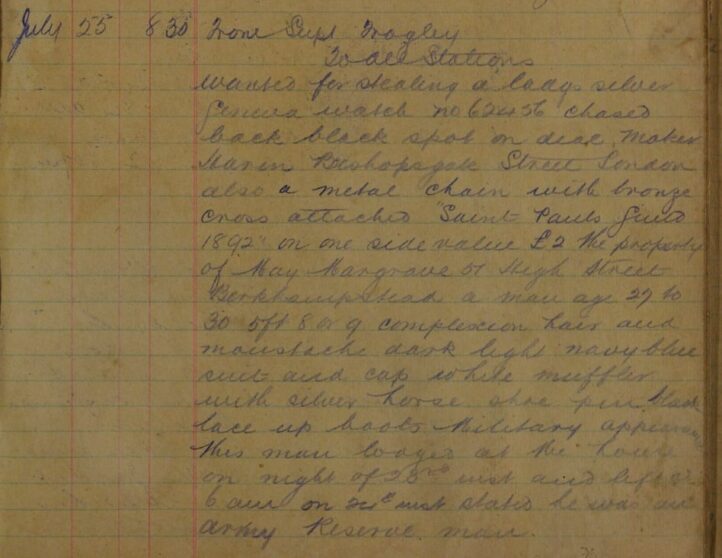 July 25 8 30 From Supt Frogley
To all Stations
Wanted for stealing a ladys silver
Geneva watch no 62456 chased
back black spot on dial, maker
Bishopsgate Street London
also a metal chain with bronze
cross attached "Saint Pauls Guild
1892" on one side value £2 the property
of May Margrave 51 High Street
Berkhampstead a man age 27 to
30 5ft 8 or 9 complexion hair and
moustache dark light navy blue
suit and cap white muffler
with silver horse shoe pin black
lace up boots Military appearance
this man lodged at the house
on night of 23rd inst and left at
6 am on 24th inst stated he was an
Army Reserve man.